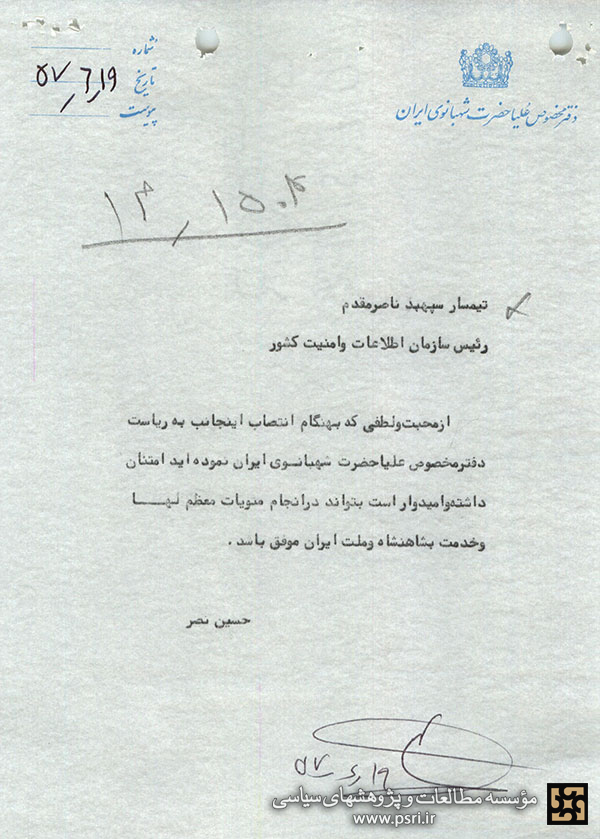 شماره
تاریخ ۵۷/۶/۱۹
پیوست
دفتر مخصوص علیاحضرت شهبانوی ایران
تیمسار سپهبد ناصرمقدم
رئیس سازمان اطلاعات وامنیت کشور
ازمحبت ولطفی که بهنگام انتصاب اینجانب به ریاست
دفترمخصوص علیاحضرت شهبانوی ایران نموده اید امتنان
داشته وامیدوار است بتواند درانجام منویات معظم لها
وخدمت بشاهنشاه وملت ایران موفق باشد .
حسین نصر
۵۷/۶/۱۹
مؤسسه مطالعات و پژوهشهای سیاسی
www.psri.ir